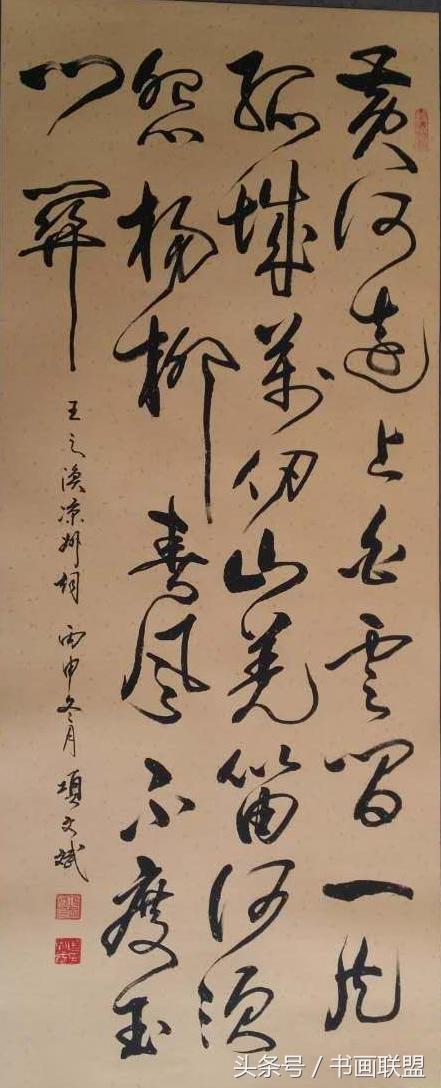 黄河远上白云间一片
孤城万仞山羌笛何须
怨杨柳春风不度玉
门关
王之涣凉州词 丙申冬月 项文斌
头条号 / 书画联盟